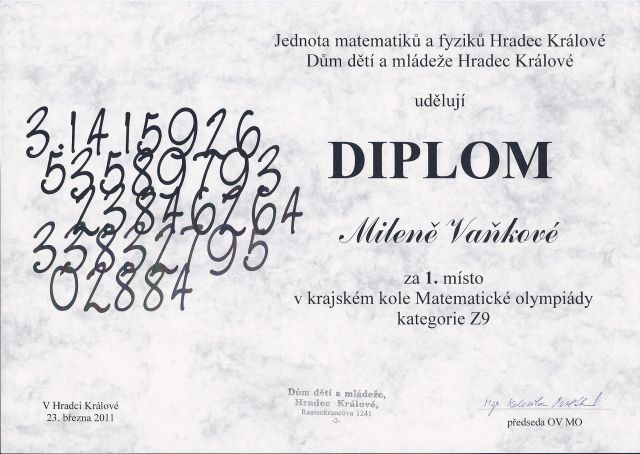 Jednota matematiků a fyziků Hradec Králové
Dům dětí a mládeže Hradec Králové
udělují
DIPLOM
Mileně Vaňkové
za 1. místo
v krajském kole Matematické olympiády
kategorie Z9
3.1415926
53589793
23846264
33832795
02884
V Hradci Králové
23. března 2011
Dům dětí a mládeže,
Hradec Králové,
Rautenkrancova 1241
-2-
Mgr.
předseda OV MO